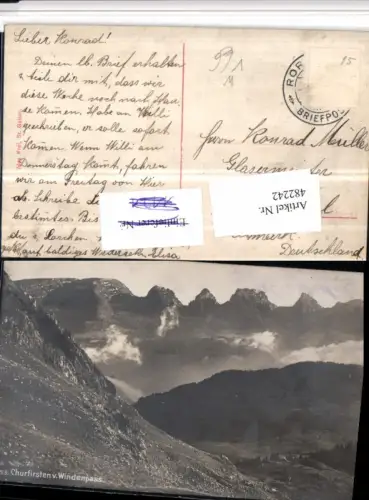 Lieber Konrad!
Deinen lb. Brief erhalten
& teile dir mit, dass wir
diese Woche noch nach Hau-
se kommen. Habe an Willi
geschrieben, er solle sofort
kommen. Wenn Willi am
Donnerstag kommt, fahren
wir am Freitag von hier
ab. Schreibe
bestimmtes Bis
du
auf baldiges Wiedersehn Elisa
Herrn Konrad Müller
Glasermeister
Deutschland
ROR
BRIEFPOS
15
Artikel Nr.
482242
Einlieferer Nr.
Churfirsten v. Windenpass